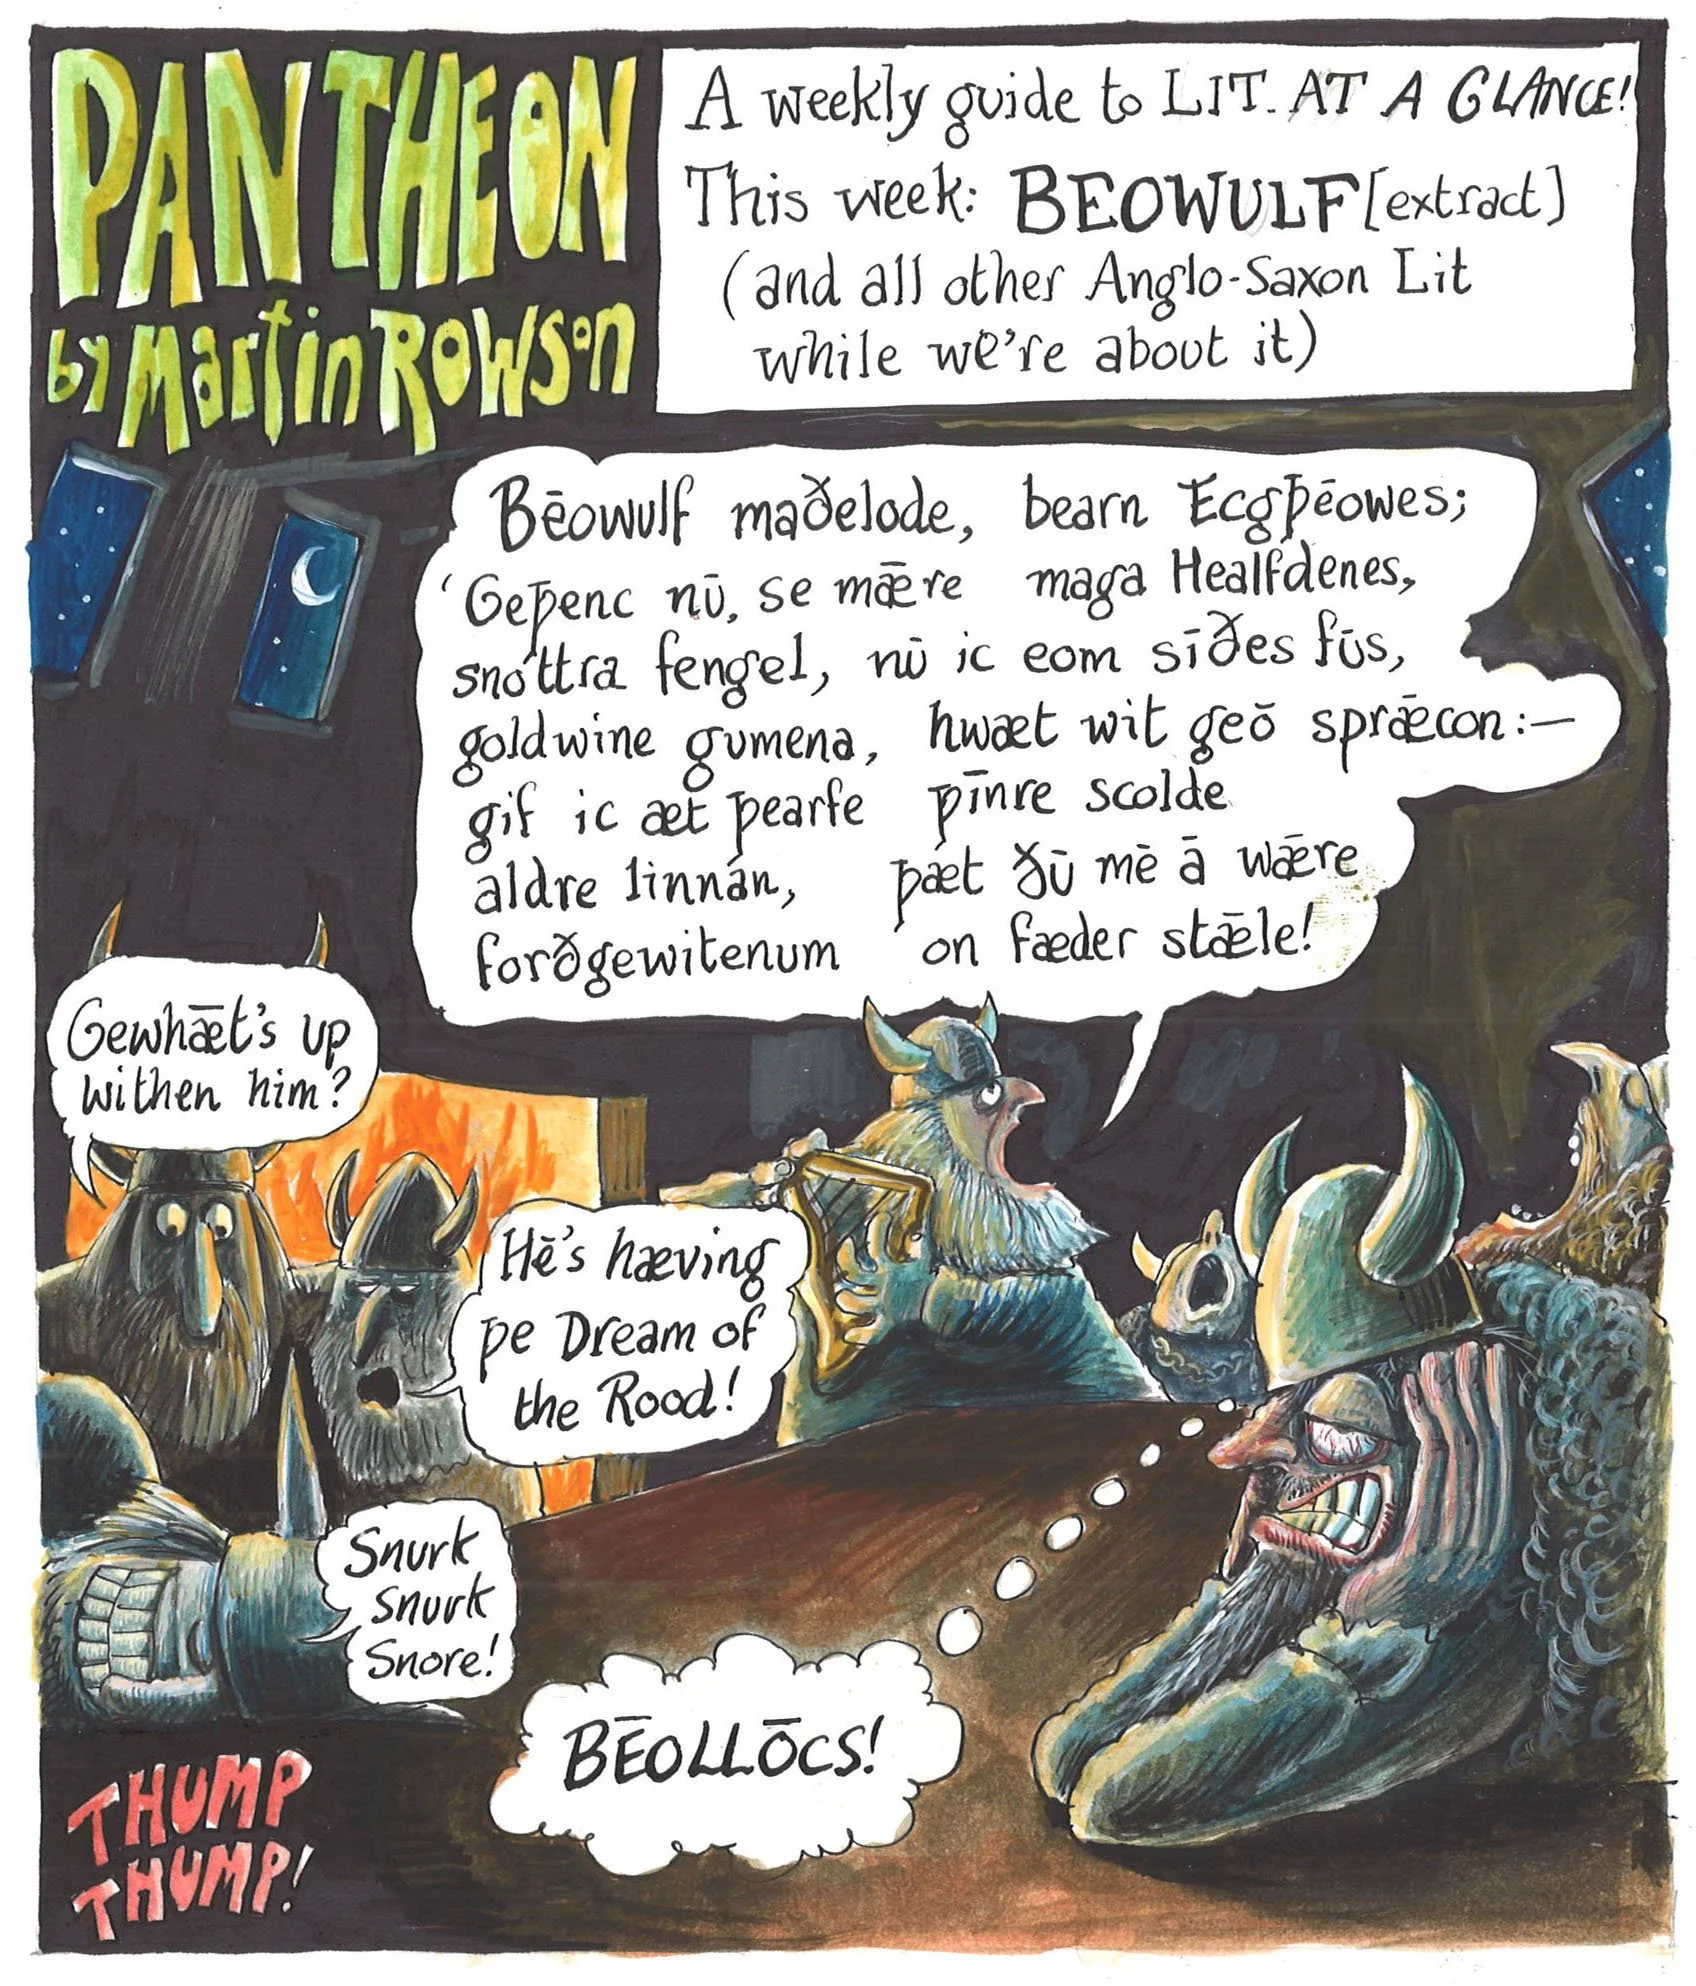 PANTHEON
by Martin Rowson
A weekly guide to LIT. AT A GLANCE!
This week: BEOWULF [extract]
(and all other Anglo-Saxon Lit
while we're about it)
Bēowulf maðelode, bearn Ecgþēowes;
'Geþenc nū, se mǣre maga Healfdenes,
snottra fengel, nū ic eom sīðes fūs,
goldwine gumena, hwæt wit geō sprǣcon:—
gif ic æt þearfe þīnre scolde
aldre linnan, þæt ðū mē ā wǣre
forðgewitenum on fæder stǣle!
Gewhǣt's up
withen him?
Hē's hæving
þe Dream of
the Rood!
Snurk
snurk
Snore!
BĒOLLŌCS!
THUMP
THUMP!